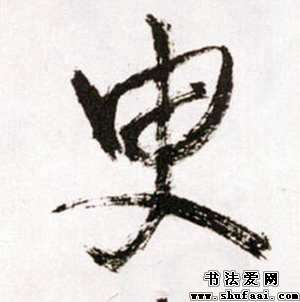 史
书法爱网
www.shufaai.com